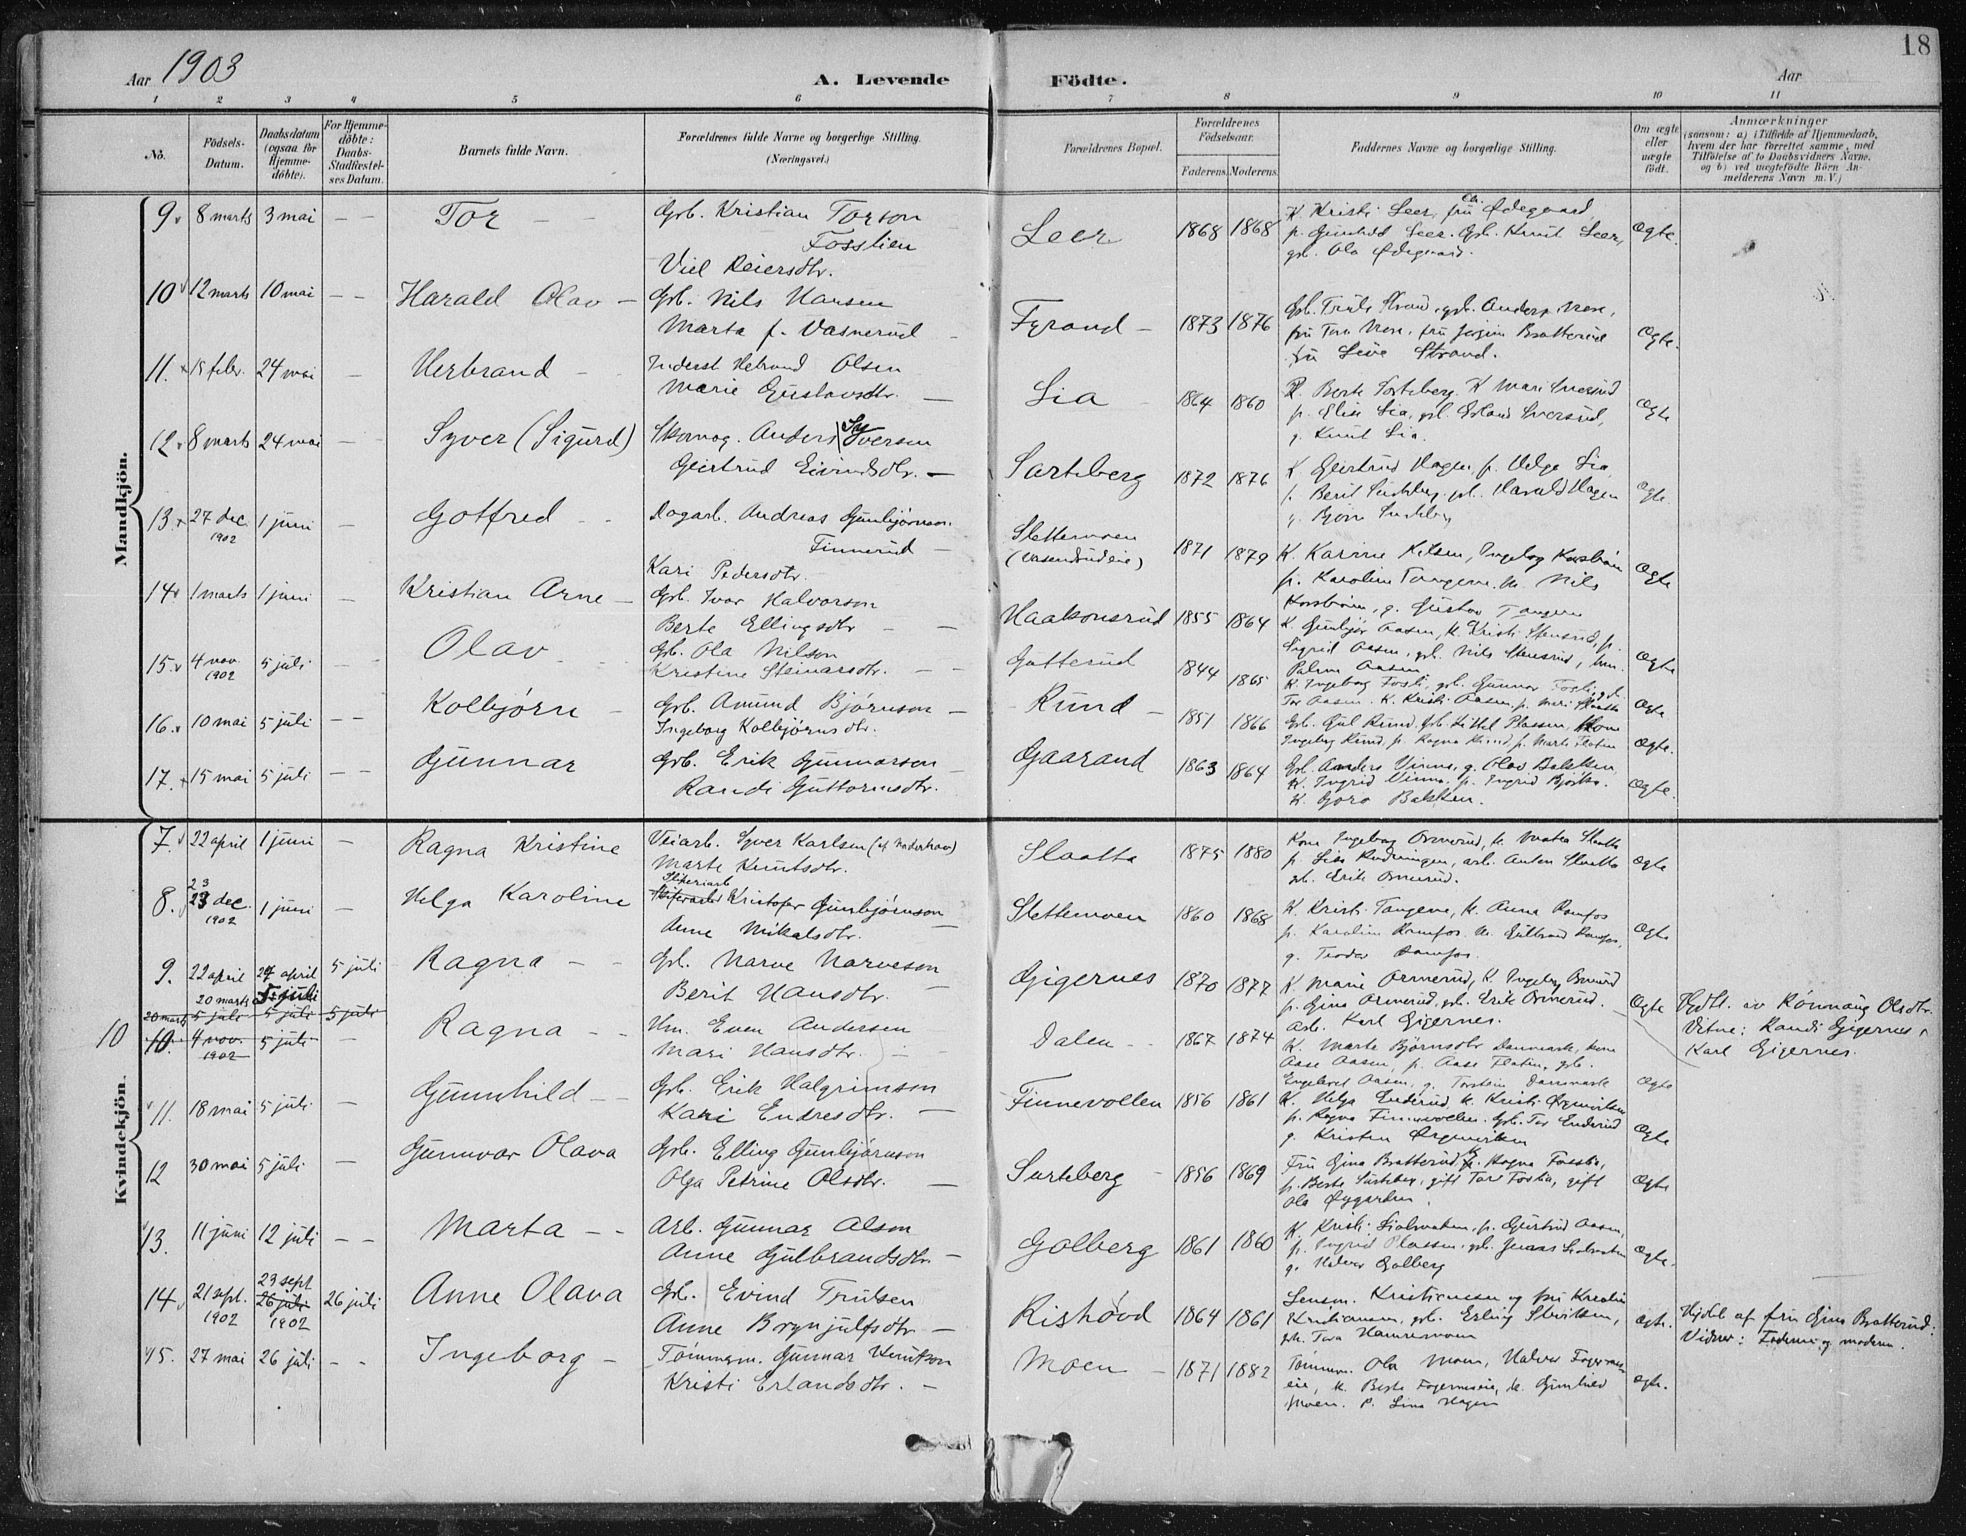 18
Aar 1903 A. Levende Födte. Aar
1 2 3 4 5 6 7 8 9 10 11
No. Födsels-Datum. Daabsdatum (ogsaa for Hjemmedöbte). For Hjemmedöbte: Daabs-Stadfæstelses Datum. Barnets fulde Navn. Forældrenes fulde Navne og borgerlige Stilling. (Næringsvei.) Forældrenes Bopæl. Forældrenes Födselsaar. Faderens. Moderens. Faddernes Navne og borgerlige Stilling. Om ægte eller uægte födt. Anmærkninger
(saasom: a) i Tilfælde af Hjemmedaab, hvem der har forrettet samme, med Tilföielse af to Daabsvidners Navne, og b) ved uægtefödte Börn Anmelderens Navn m. V.)
Mandkjön.
9 8 marts 3 mai — — Tor — — Grb. Kristian Torson
Fosslien
Viel Reiersdtr.
Leer 1868 1868 K. Kristi Leer, fru Ødegaard,
p. Gunhild Leer. Grb. Knut Leer,
grb. Ola Ødegaard.
Ægte.
10 12 marts 10 mai — — Harald Olav — Grb. Nils Hansen
Marta f. Vasnerud —
Fyrand — 1873 1876 Grb. Truls Strand, grb. Anders More,
fru Tora More, fru Jørgine Bratterud
fru Live Strand.
Ægte.
11. 15 febr. 24 mai — — Herbrand — — Inderst Helrand Olsen
Marie Gustavsdtr. —
Lia 1864 1860
p. Elise Lia, grb. Erland
g. Knut Lia.
Ægte
12 8 marts 24 mai — Syver (Sigurd) Skomag. Anders Syversen
Geirtrud Eivindsdtr. —
Sarteberg 1872 1876 K. Geirtrud Hagen, p. Helge Lia,
p. Berit Surteberg, grb. Harald Hagen
g. Bjørn Surteberg
Ægte
13. 27 dec. 1902 1 juni — Gotfred — — Dagarb. Andreas Gunbjørnson
Finnerud —
Kari Pedersdtr.
Slettemoen
1871 1879 K. Karine Nilsen, Ingeborg
p. Karoline Tangene. Nils
g. Gustav Tangen
Ægte
14 1 marts 1 juni — Kristian Arne — Grb. Ivar Halvorson
Berte Ellingsdtr — —
Haakonsrud 1855 1864 K. Gunbjør Aasen, K. Kristi Stensrud, p.
Sigrid Aasen, grb. Nils Stensrud,
Palme Aasen
Ægte
15. 4 nov. 1902 5 juli — Olav — Grb. Ola Nilson
Kristine Steinarsdtr. — —
Gutterud 1844 1865 K. Ingeborg Fosli, grb. Gunnar Fosli, grb.
Tor Aasen. K. Kristi Aasen, p. Slaatto
Ægte
16. 10 mai 5 juli — — Kolbjørn — Grb. Amund Bjørnson —
Ingeborg Kolbjørnsdtr.
Rund — 1851 1866 Grb. Gul Rund, Grb. Kittel Plassen, Kone
Ingeborg Rund, p. Ragna Rund, p. Marte Flaten
Ægte.
17. 15 mai 5 juli — Gunnar Grb. Erik Gunnarson —
Randi Guttormsdtr.
Gaarand 1863 1864 Grb. Anders Vinna, g. Olav Bakken,
K. Ingrid Vinna, p. Ingrid
K. Goro Bakken.
Ægte.
Kvindekjön.
7. 22 april 1 juni — Ragna Kristine Veiarb. Syver Karlsen (af Naderhov)
Marte Knutsdtr.
Slaatta 1875 1880 Kone Ingeborg Ormerud, K. Slaatto
p. Lise Rudningen, arb. Anton Slaatto
grb. Erik Ormerud.
Ægte
8. 23 dec. 1902 1 juni — Helga Karoline Sliperiarb Kristofer Gunbjørnson
Anne Mikalsdtr. —
Slettemoen 1860 1868 K. Kristi Tangene, K. Anna Ramfos
p. Karoline Ramfos. Gulbrand Ramfos,
g. Teodor Ramfos.
Ægte
9. 22 april 24 april 5 juli — Ragna — — Grb. Narve Narveson
Berit Hansdtr. —
Gigernes 1870 1877 K. Marie Ormerud, K. Ingeborg
p. Gina Ormerud, grb. Erik Ormerud.
arb. Karl Gigernes.
Ægte Hjdt. av Rønnaug Olsdtr.
Vitne: Randi Gigernes,
Karl Gigernes.
20 marts 5 juli
20 marts 5 juli 5 juli 5 juli
10 10. 4 nov. 1902 5 juli — Ragna — — Hm. Even Andersen
Mari Hansdtr. — —
Dalen — — 1867 1874 K. Marte Bjørnsdtr Danmark, kone
Aase Aasen, p. Aase Flaten, grb.
Engebret Aasen, g. Torstein Danmark
Ægte
11. 18 mai 5 juli — Gunnhild — — Grb. Erik Halgrimson
Kari Endresdtr. —
Finnevollen 1856 1861 K. Helga Enderud, K. Kristi Ørgenviken
p. Ragna Finnevollen. Grb. Tor Enderud
g. Kristen Ørgenviken
Ægte
12 30 mai 5 juli — Gunnvor Olava Grb. Elling Gunbjørnson
Olga Petrine Olsdtr. —
Surteberg — 1856 1869 Fru Gina Bratterud, K. Ragna Fosslia,
p. Berte Surteberg, gift Tore Foslia, gift
Ola Øygarden.
Ægte
13. 11 juni 12 juli — — Marta — — Arb. Gunnar Olson
Anne Gulbrandsdtr. —
Golberg 1861 1860 K. Kristi p. Geirtrud Aasen,
p. Ingrid Plassen, grb. Jonas
g. Halvor Golberg
Ægte.
14. 21 sept. 1902 23 sept 26 juli 1902 26 juli Anne Olava Grb. Eivind Trulsen
Anne Brynjulfsdtr —
Rishovd 1864 1861 Lensm. Kristiansen og fru Karoline
Kristiansen, grb. Erling Skviksen,
grb. Tora Hammemoen
Ægte. Hjdbt af fru Gina Bratterud.
Vidner: Faderen og moderen.
15. 27 mai 26 juli — — Ingeborg — Tømmerm. Gunnar Knutson
Kristi Erlandsdtr. —
Moen — 1871 1882 Tømmerm. Ola Moen, Halvor Fagernes-
eie, K. Berte Fagerneseie, K. Gunhild
Moen. P. Lina Hagen
Ægte.